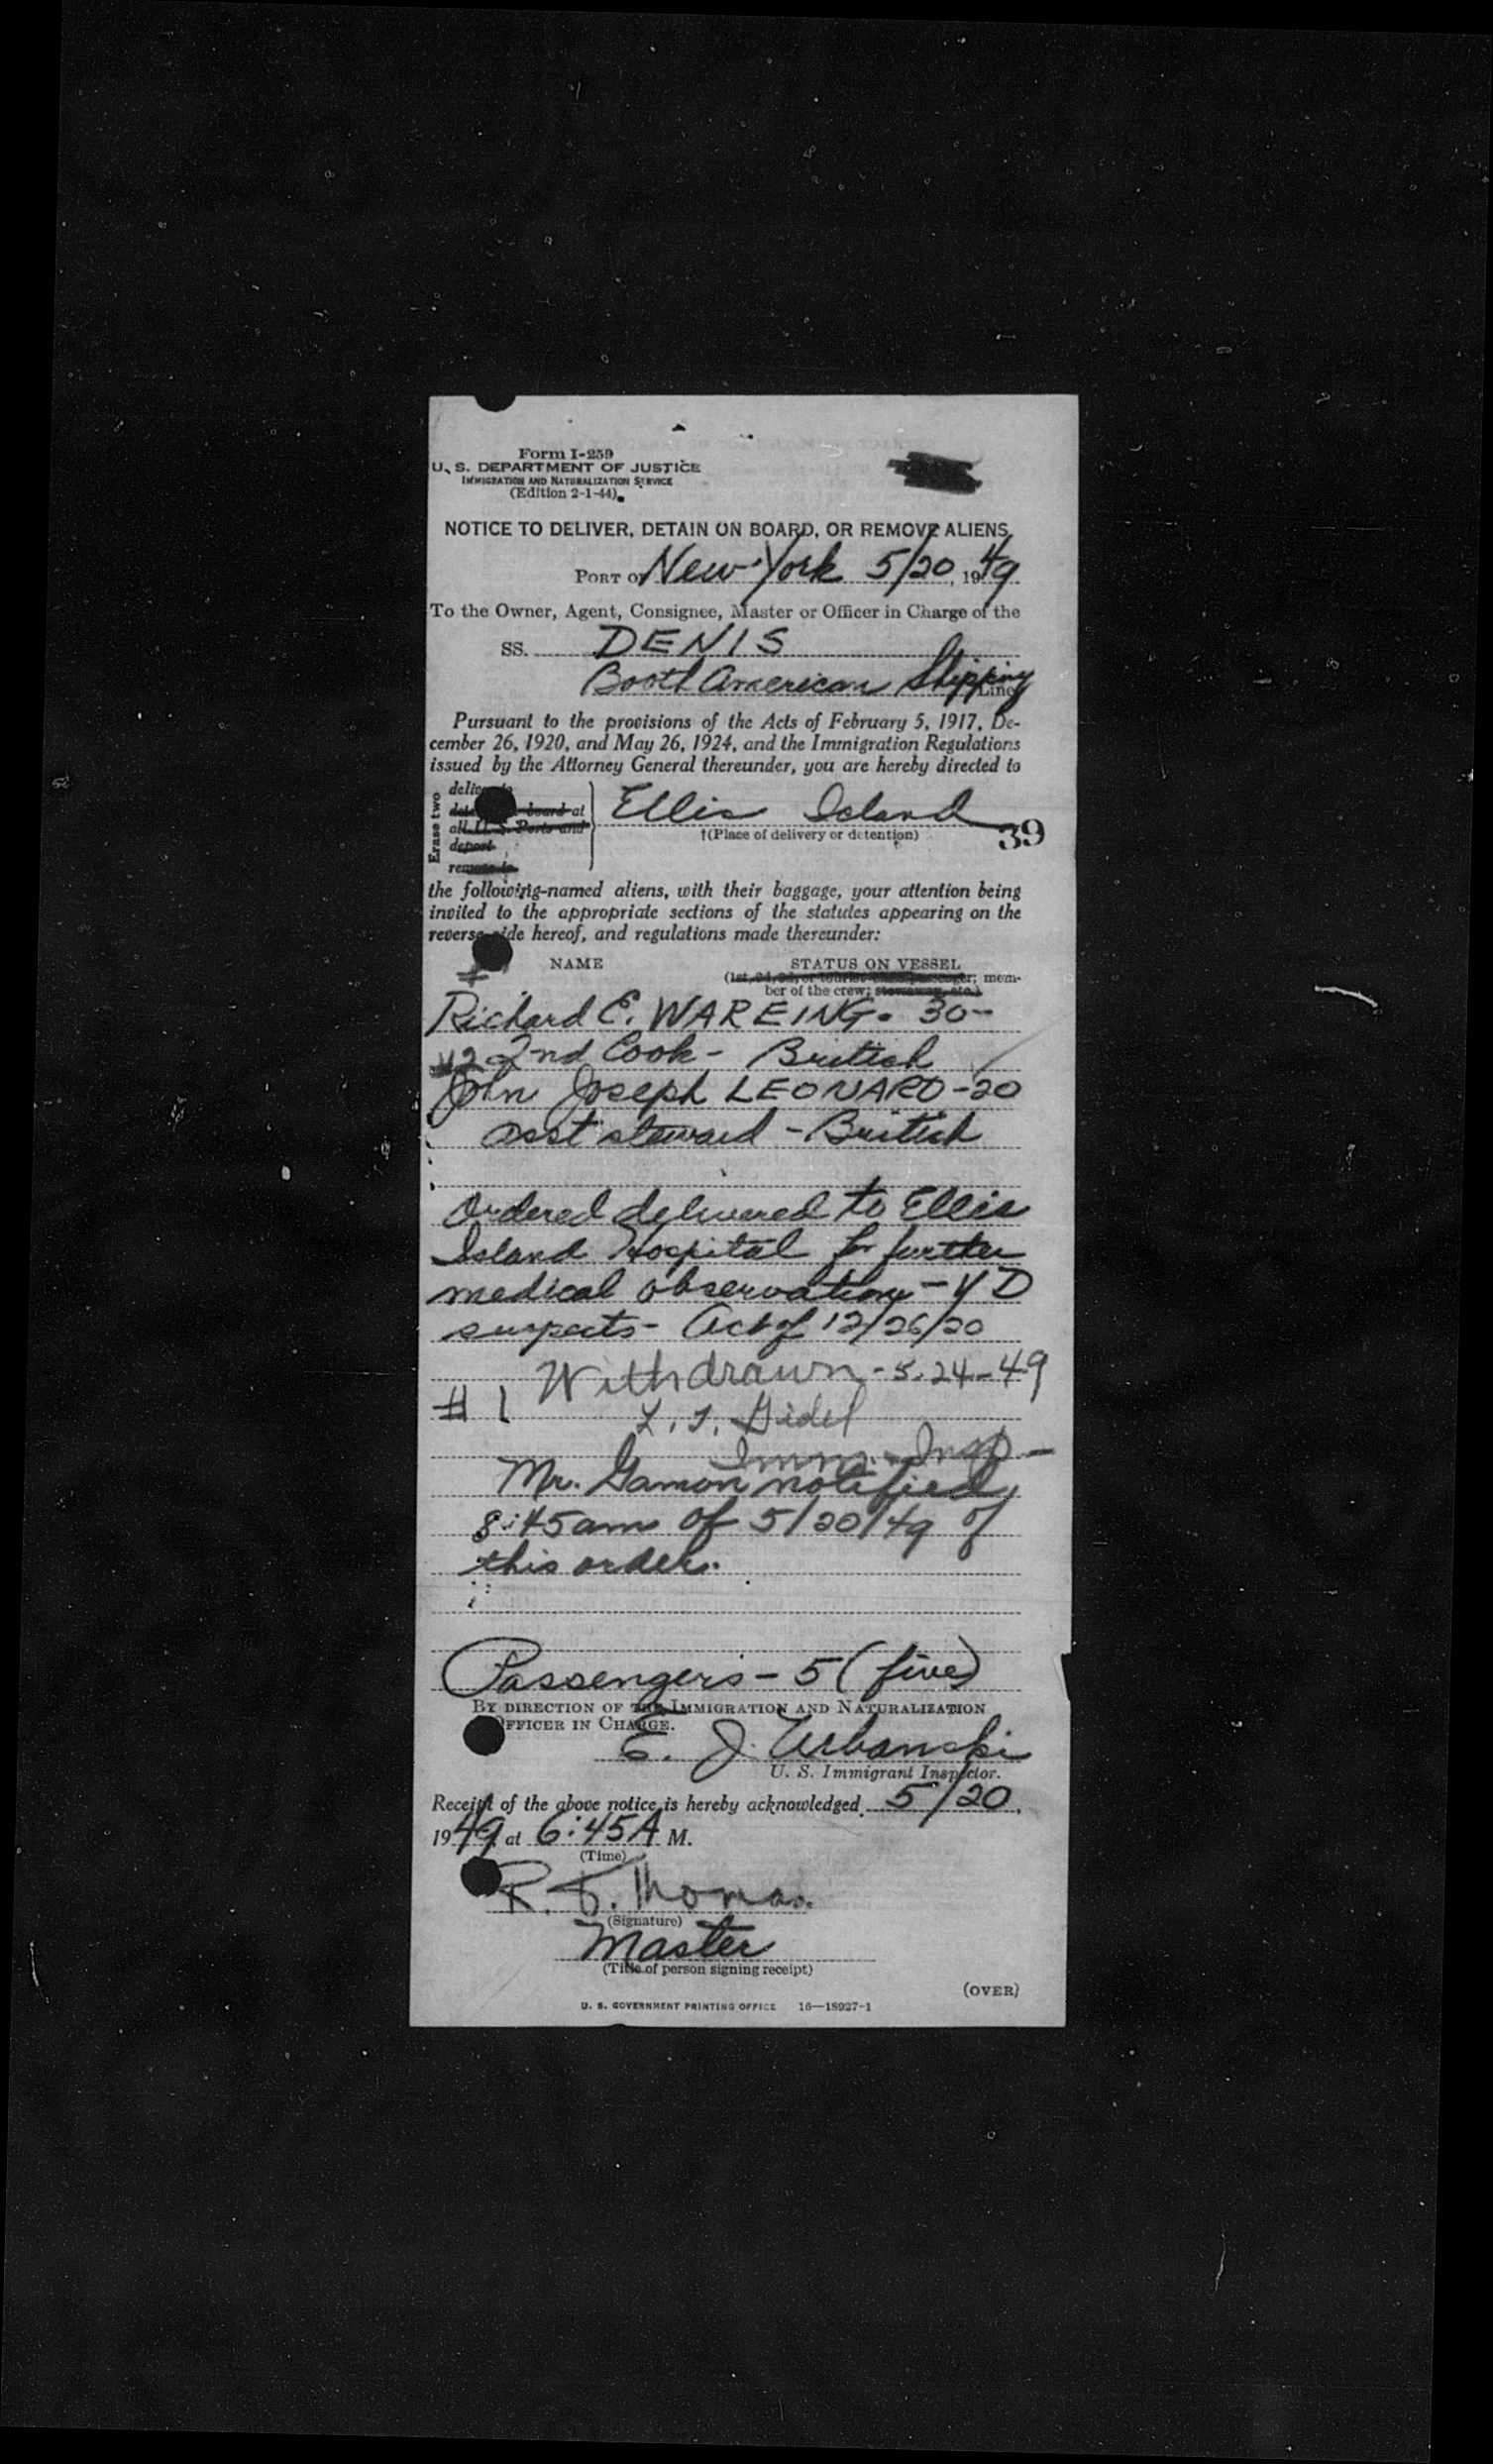 Form I-259
U. S. DEPARTMENT OF JUSTICE
IMMIGRATION AND NATURALIZATION SERVICE
(Edition 2-1-44)
NOTICE TO DELIVER, DETAIN ON BOARD, OR REMOVE ALIENS
PORT OF New York 5/20, 1949
To the Owner, Agent, Consignee, Master or Officer in Charge of the
SS. DENIS
Booth American Shipping Line
Pursuant to the provisions of the Acts of February 5, 1917, De-
cember 26, 1920, and May 26, 1924, and the Immigration Regulations
issued by the Attorney General thereunder, you are hereby directed to
Erase two
deliver to
board at
all U. S. Ports and
deport
remove to
Ellis Island
†(Place of delivery or detention)
39
the following-named aliens, with their baggage, your attention being
invited to the appropriate sections of the statutes appearing on the
reverse side hereof, and regulations made thereunder:
NAME STATUS ON VESSEL
(1st, 2d, 3d, or tourist passenger; mem-
ber of the crew; stowaway, etc.)
Richard E. WAREING - 30-
#2 2nd Cook - British
John Joseph LEONARD - 20
asst steward - British
Ordered delivered to Ellis
Island Hospital for further
medical observation - VD
suspects - Act of 12/26/20
Withdrawn - 5-24-49
#1
Imm. Insp-
Mr. Gamon notified
8:45 am of 5/20/49 of
this order.
Passengers - 5 (five)
BY DIRECTION OF THE IMMIGRATION AND NATURALIZATION
OFFICER IN CHARGE.
E. J. Urbanski
U. S. Immigrant Inspector.
Receipt of the above notice is hereby acknowledged 5/20,
1949 at 6:45 A M.
(Time)
R. F. Thomas.
(Signature)
Master
(Title of person signing receipt)
(OVER)
U. S. GOVERNMENT PRINTING OFFICE 16—18927-1